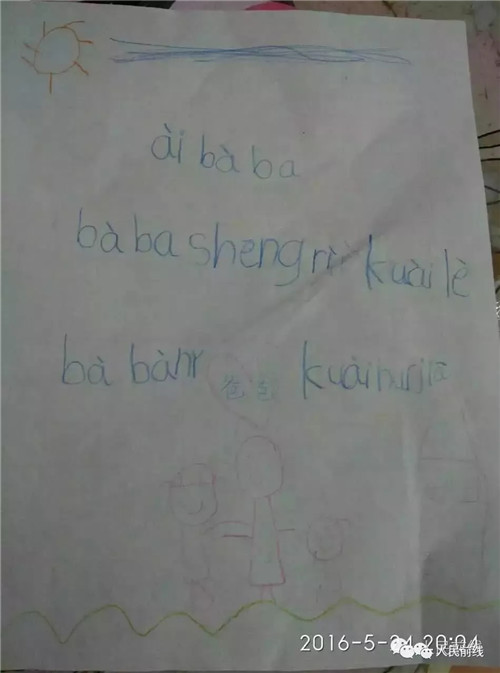 ài bà ba
bà ba sheng rì kuài lè
bà bà kuài
2016-5-24 20:04
人民前线